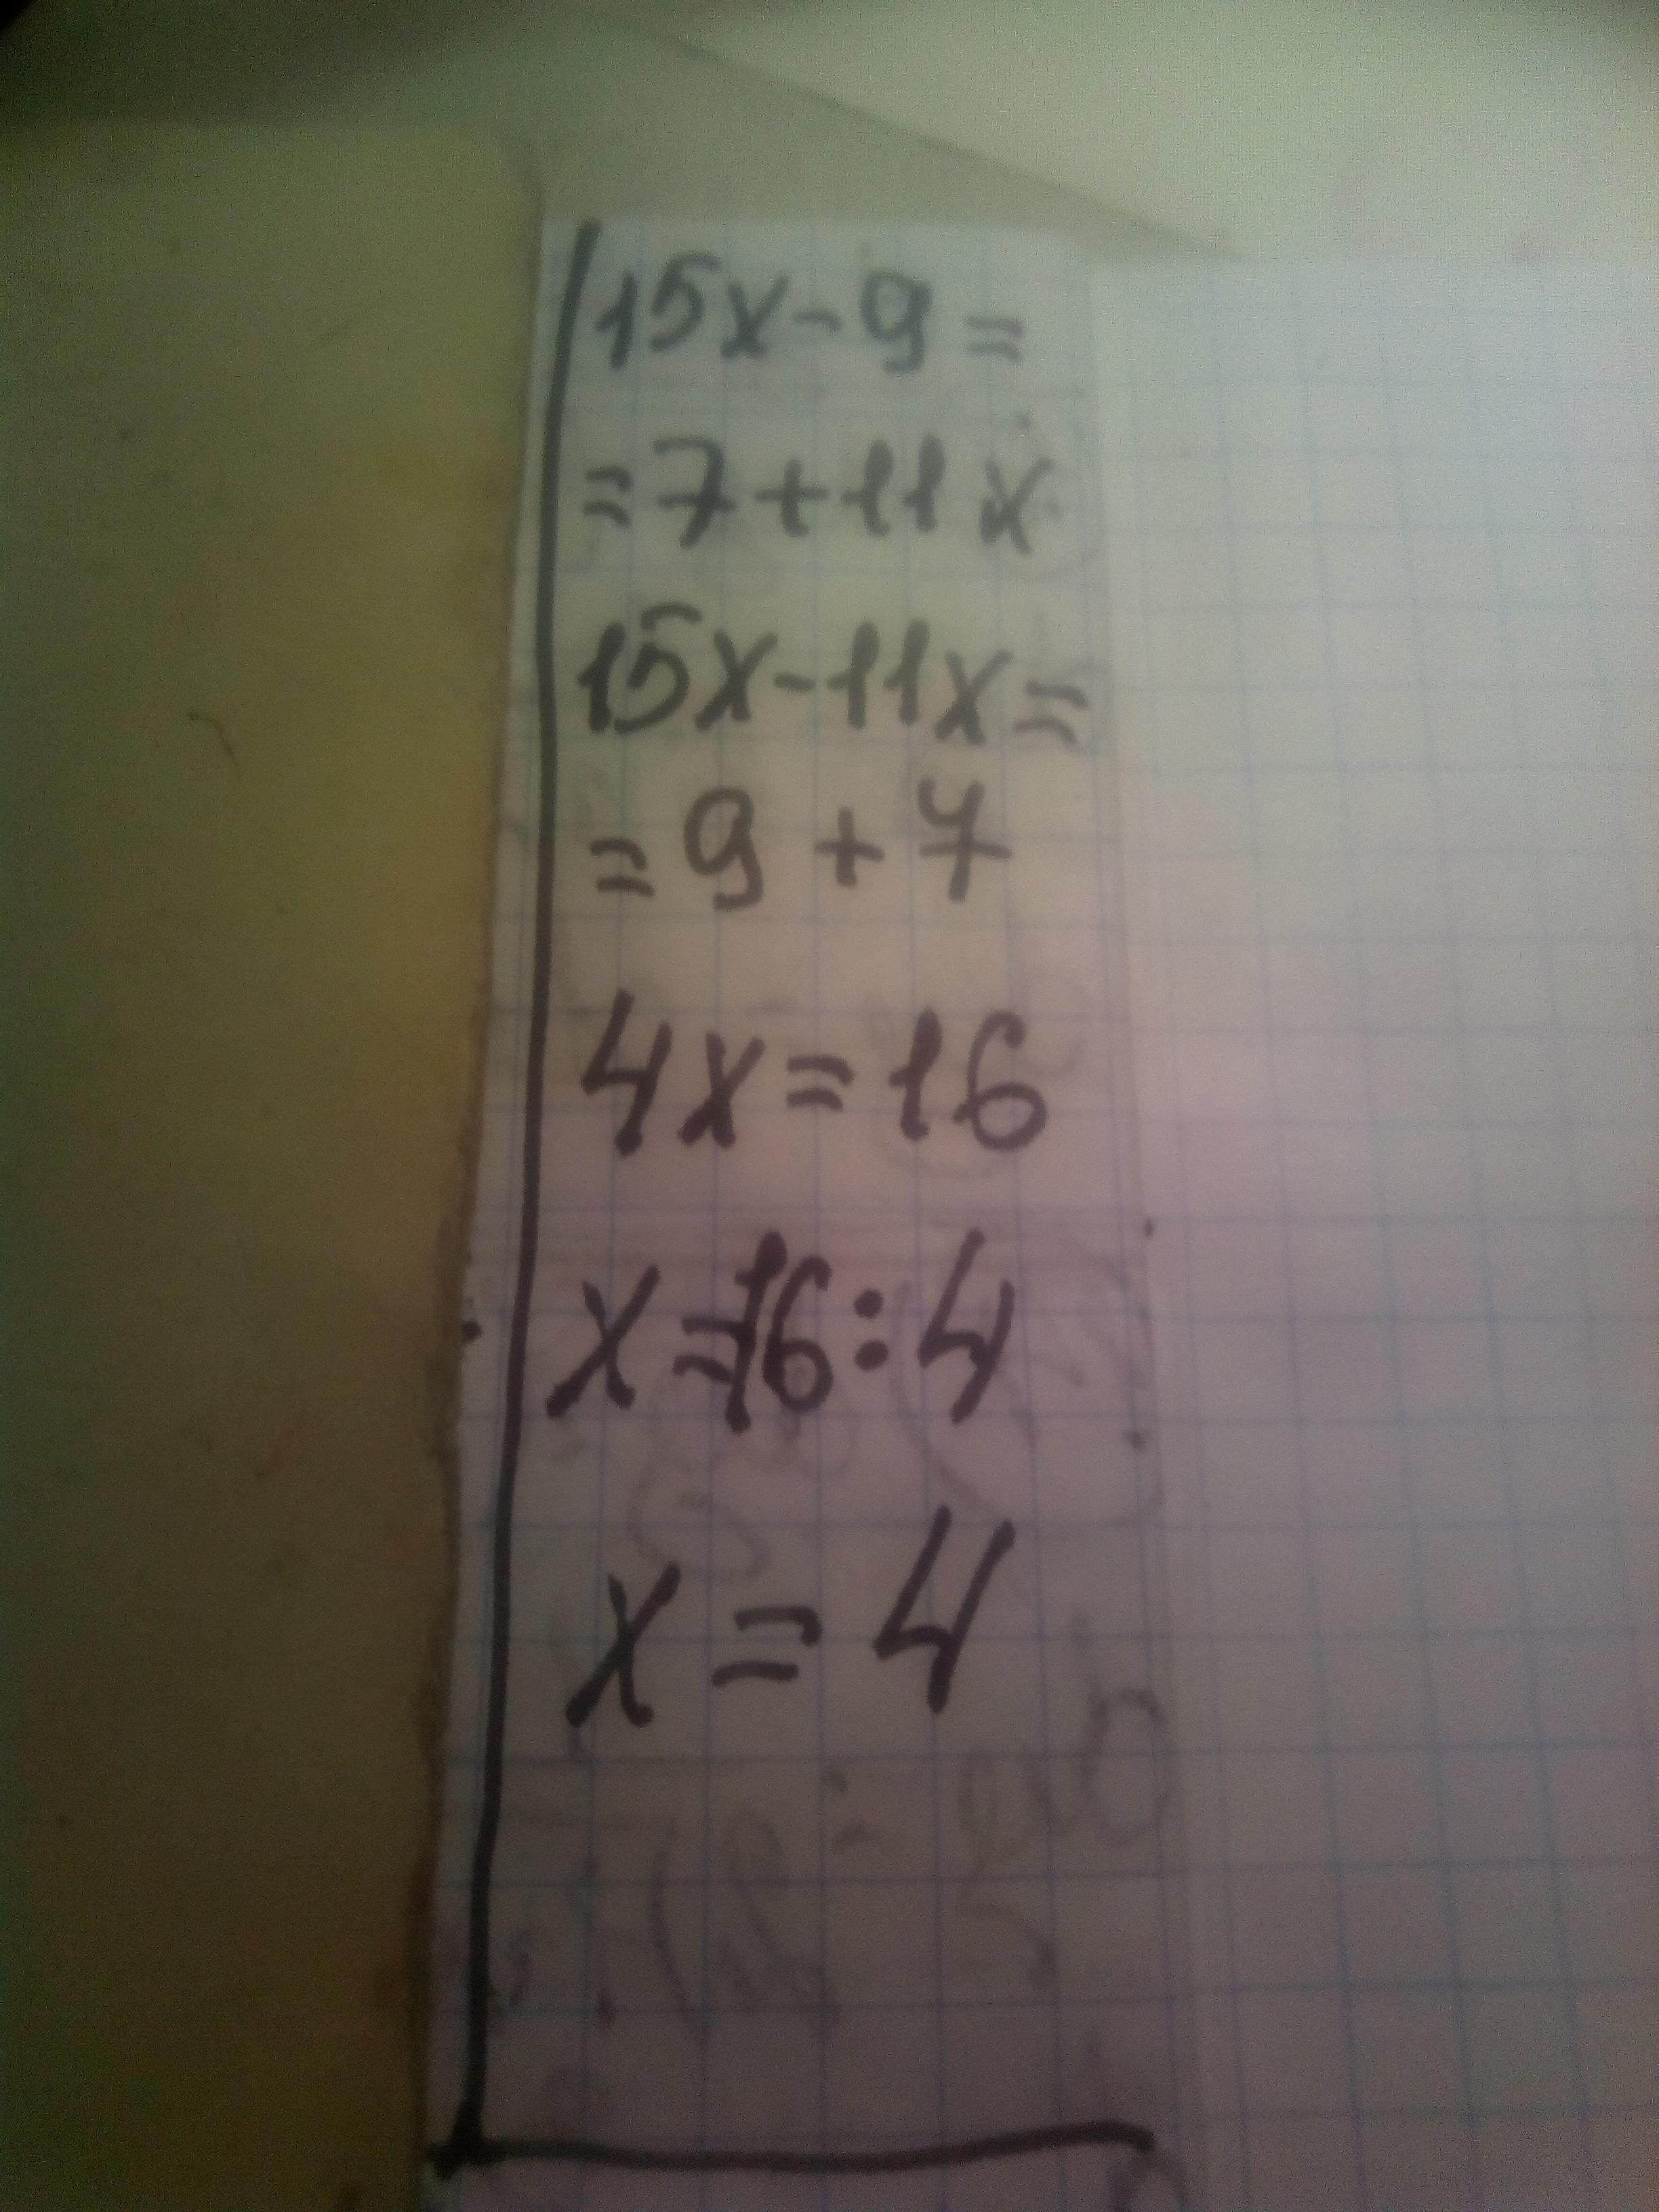 15x-9=
=7+11x
15x-11x=
=9+7
4x=16
x=16:4
x=4